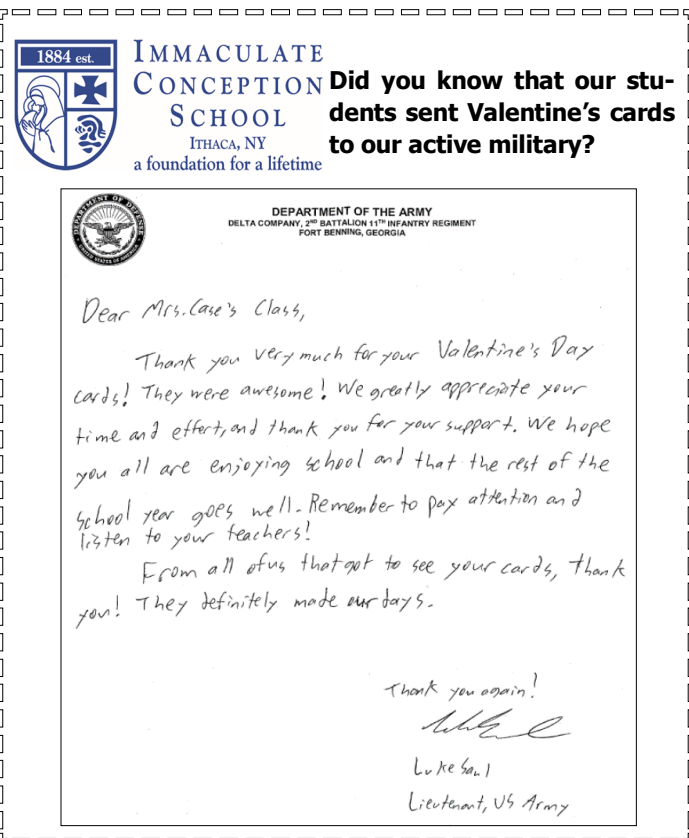 1884 est.
IMMACULATE
CONCEPTION
SCHOOL
ITHACA, NY
a foundation for a lifetime
Did you know that our stu-
dents sent Valentine's cards
to our active military?
DEPARTMENT OF DEFENSE
UNITED STATES OF AMERICA
DEPARTMENT OF THE ARMY
DELTA COMPANY, 2ND BATTALION 11TH INFANTRY REGIMENT
FORT BENNING, GEORGIA
Dear Mrs. Case's Class,
Thank you very much for your Valentine's Day
cards! They were awesome! We greatly appreciate your
time and effort, and thank you for your support. We hope
you all are enjoying school and that the rest of the
school year goes well. Remember to pay attention and
listen to your teachers!
From all of us that got to see your cards, thank
you! They definitely made our days.
Thank you again!
Luke Saul
Lieutenant, US Army